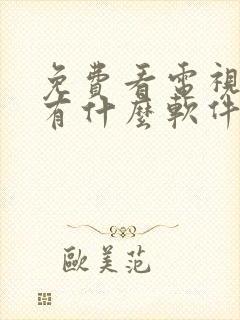 免費看電視
有什麼軟件
歐美范